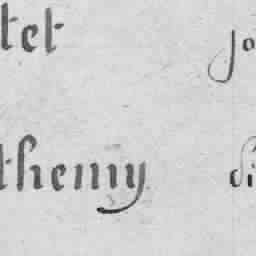 tet jo
themy di